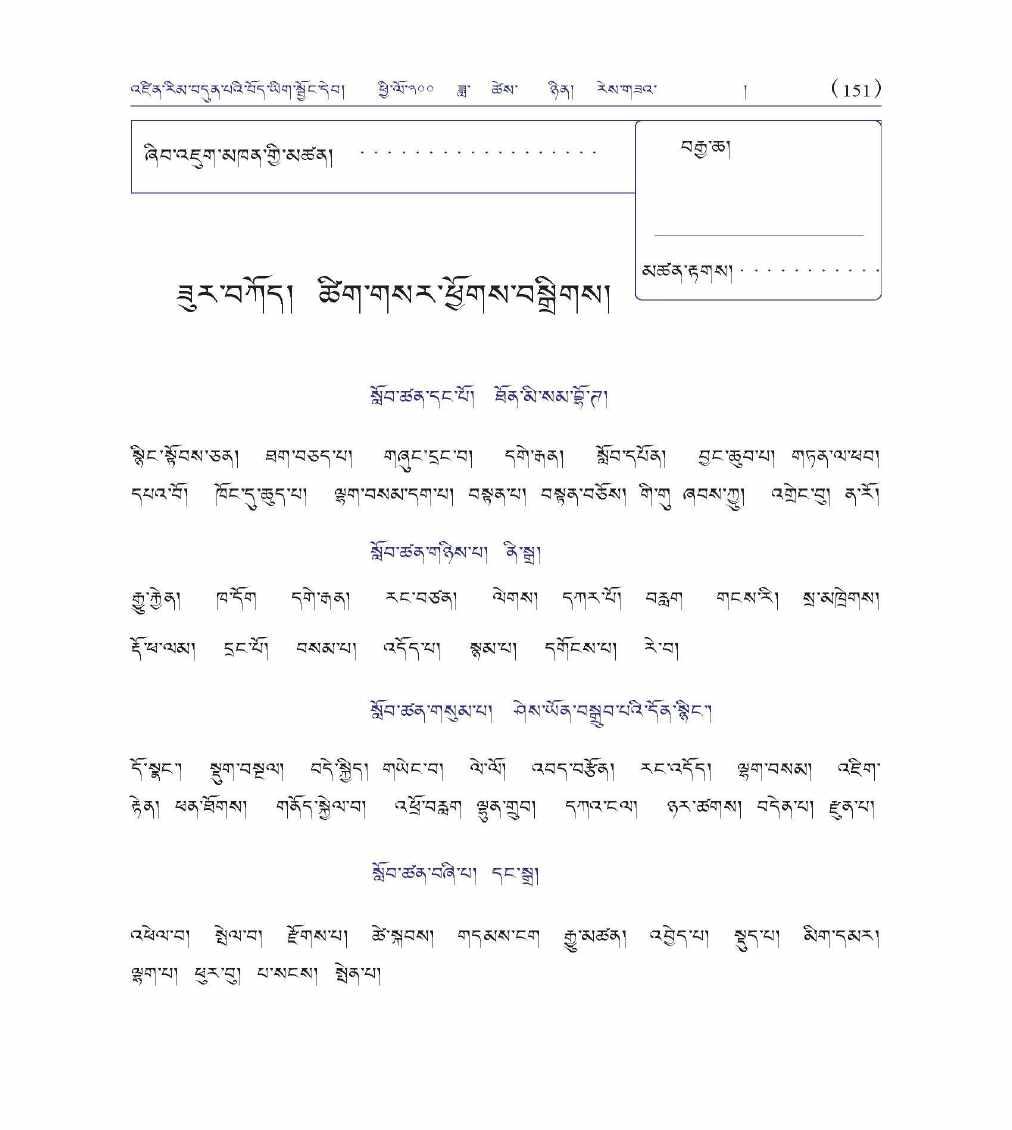 འཛིན་རིམ་བདུན་པའི་བོད་ཡིག་སྦྱོང་དེབ། ཕྱི་ལོ་༢༠༠ ཟླ་ ཚེས་ ཉིན། རེས་གཟའ་ ། (151)
ཞིབ་འཇུག་མཁན་གྱི་མཚན། . . . . . . . . . . . . . . . . . .
བརྒྱ་ཆ།
མཚན་རྟགས། . . . . . . . . . . .
ཟུར་བཀོད། ཚིག་གསར་ཕྱོགས་བསྒྲིགས།
སློབ་ཚན་དང་པོ། ཐོན་མི་སམ་བྷོ་ཊ།
སྙིང་སྟོབས་ཅན། ཐག་བཅད་པ། གཞུང་དྲང་བ། དགེ་རྒན། སློབ་དཔོན། བྱང་ཆུབ་པ། གཏན་ལ་ཕབ།
དཔའ་བོ། ཁོང་དུ་ཆུད་པ། ལྷག་བསམ་དག་པ། བསྟན་པ། བསྟན་བཅོས། གི་གུ ཞབས་ཀྱུ། འགྲེང་བུ། ན་རོ།
སློབ་ཚན་གཉིས་པ། ནི་སྒྲ།
རྒྱུ་རྐྱེན། ཁ་དོག དགེ་རྒན། རང་བཙན། ལེགས། དཀར་པོ། བརླག གངས་རི། སྲ་མཁྲེགས།
རྡོ་ཕ་ལམ། དྲང་པོ། བསམ་པ། འདོད་པ། སྙམ་པ། དགོངས་པ། རེ་བ།
སློབ་ཚན་གསུམ་པ། ཤེས་ཡོན་བསྒྲུབ་པའི་དོན་སྙིང་།
དོ་སྣང་། སྡུག་བསྔལ། བདེ་སྐྱིད། གཡེང་བ། ལེ་ལོ། འབད་བརྩོན། རང་འདོད། ལྷག་བསམ། འཇིག་
རྟེན། ཕན་ཐོགས། གནོད་སྐྱེལ་བ། འཕྲོ་བརླག ལྷུན་གྲུབ། དཀའ་ངལ། ཉར་ཚགས། བདེན་པ། རྫུན་པ།
སློབ་ཚན་བཞི་པ། དང་སྒྲ།
འཕེལ་བ། སྤེལ་བ། རྫོགས་པ། ཚེ་སྐབས། གདམས་ངག རྒྱུ་མཚན། འབྱེད་པ། སྡུད་པ། མིག་དམར།
ལྷག་པ། ཕུར་བུ། པ་སངས། སྤེན་པ།